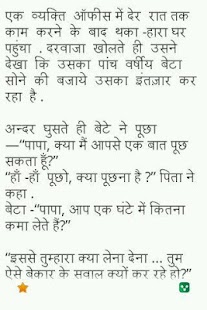 एक व्यक्ति ऑफीस में देर रात तक
काम करने के बाद थका -हारा घर
पहुंचा . दरवाजा खोलते ही उसने
देखा कि उसका पांच वर्षीय बेटा
सोने की बजाये उसका इंतज़ार कर
रहा है .
अन्दर घुसते ही बेटे ने पूछा
—“पापा, क्या मैं आपसे एक बात पूछ
सकता हूँ?”
“हाँ -हाँ पूछो, क्या पूछना है ?” पिता ने
कहा .
बेटा -“पापा, आप एक घंटे में कितना
कमा लेते हैं?”
“इससे तुम्हारा क्या लेना देना … तुम
ऐसे बेकार के सवाल क्यों कर रहे हो?”